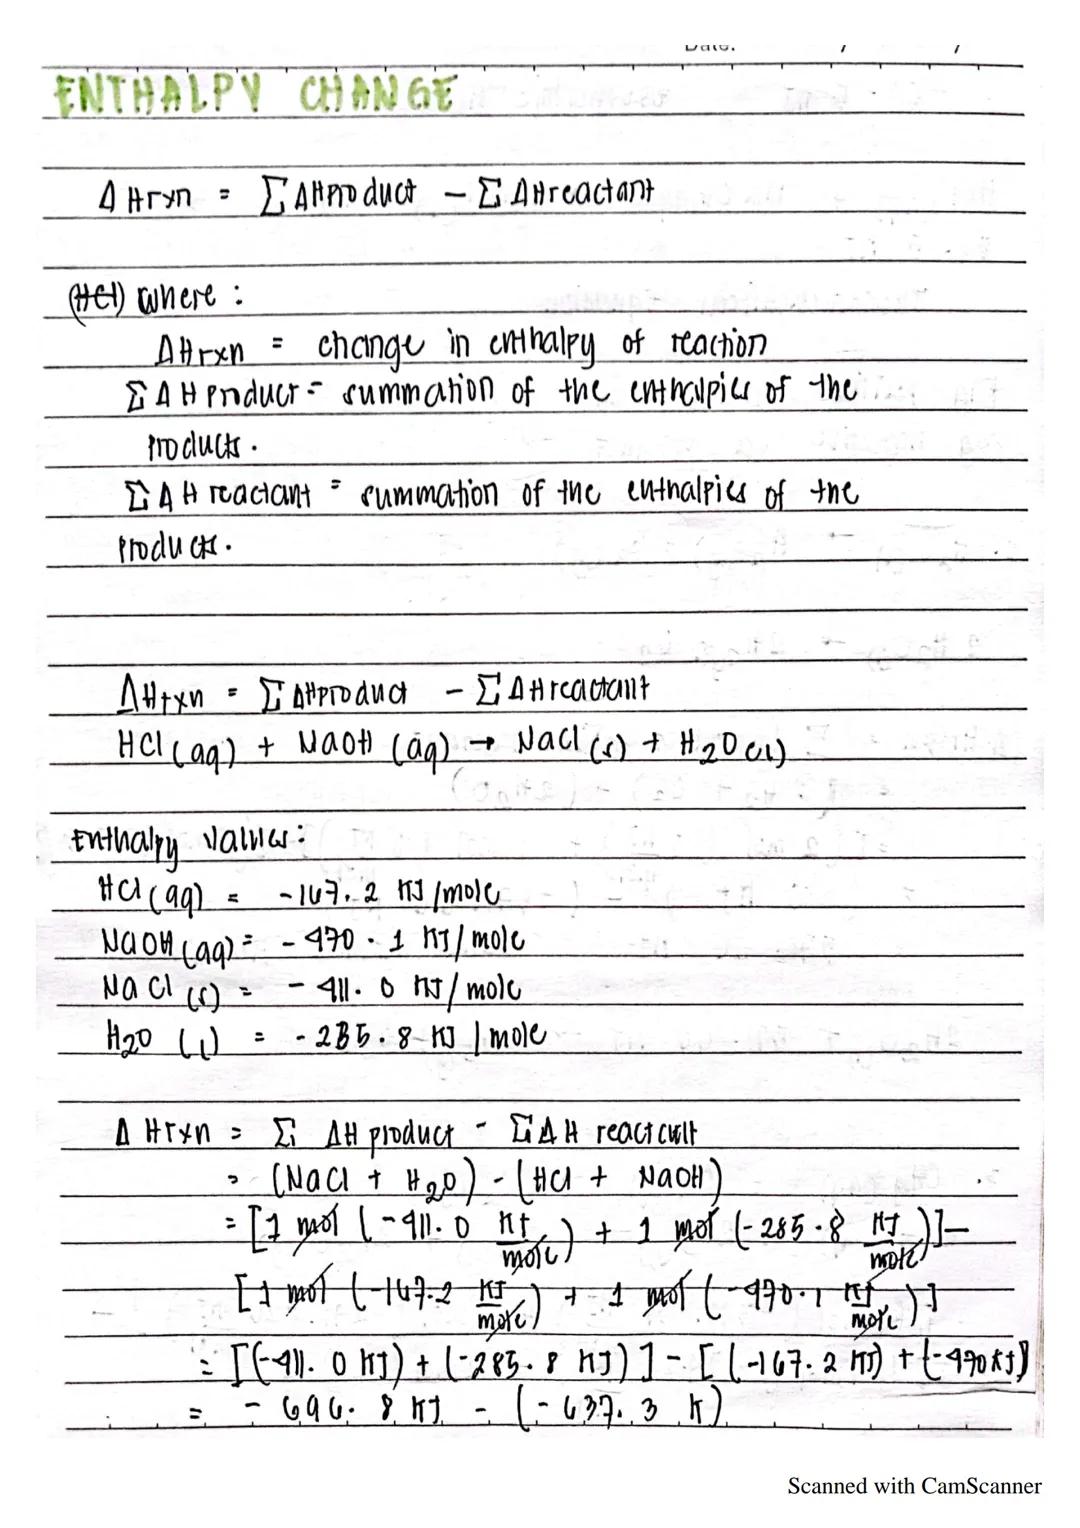 Date: / /
ENTHALPY CHANGE
Δ Hrxn = Σ ΔHproduct - Σ ΔHreactant
(HCl) where :
ΔHrxn = change in enthalpy of reaction
Σ Δ H product = summation of the enthalpies of the
products.
Σ Δ H reactant = summation of the enthalpies of the
products.
ΔHrxn = Σ ΔHproduct - Σ ΔHreactant
HCl (aq) + NaOH (aq) → NaCl (s) + H₂O (l)
Enthalpy values:
HCl (aq) = -167.2 KJ/mole
NaOH (aq) = -470.1 KJ/mole
NaCl (s) = -411.0 KJ/mole
H₂O (l) = -285.8 KJ/mole
Δ Hrxn = Σ ΔH product - Σ Δ H reactant
= (NaCl + H₂O) - (HCl + NaOH)
= [1 mol (-411.0 KJ/mole) + 1 mol (-285.8 KJ/mole)] -
[1 mol (-167.2 KJ/mole) + 1 mol (-470.1 KJ/mole)]
= [(-411.0 KJ) + (-285.8 KJ)] - [(-167.2 KJ) + (-470 KJ)]
= -696.8 KJ - (-637.3 K)
Scanned with CamScanner